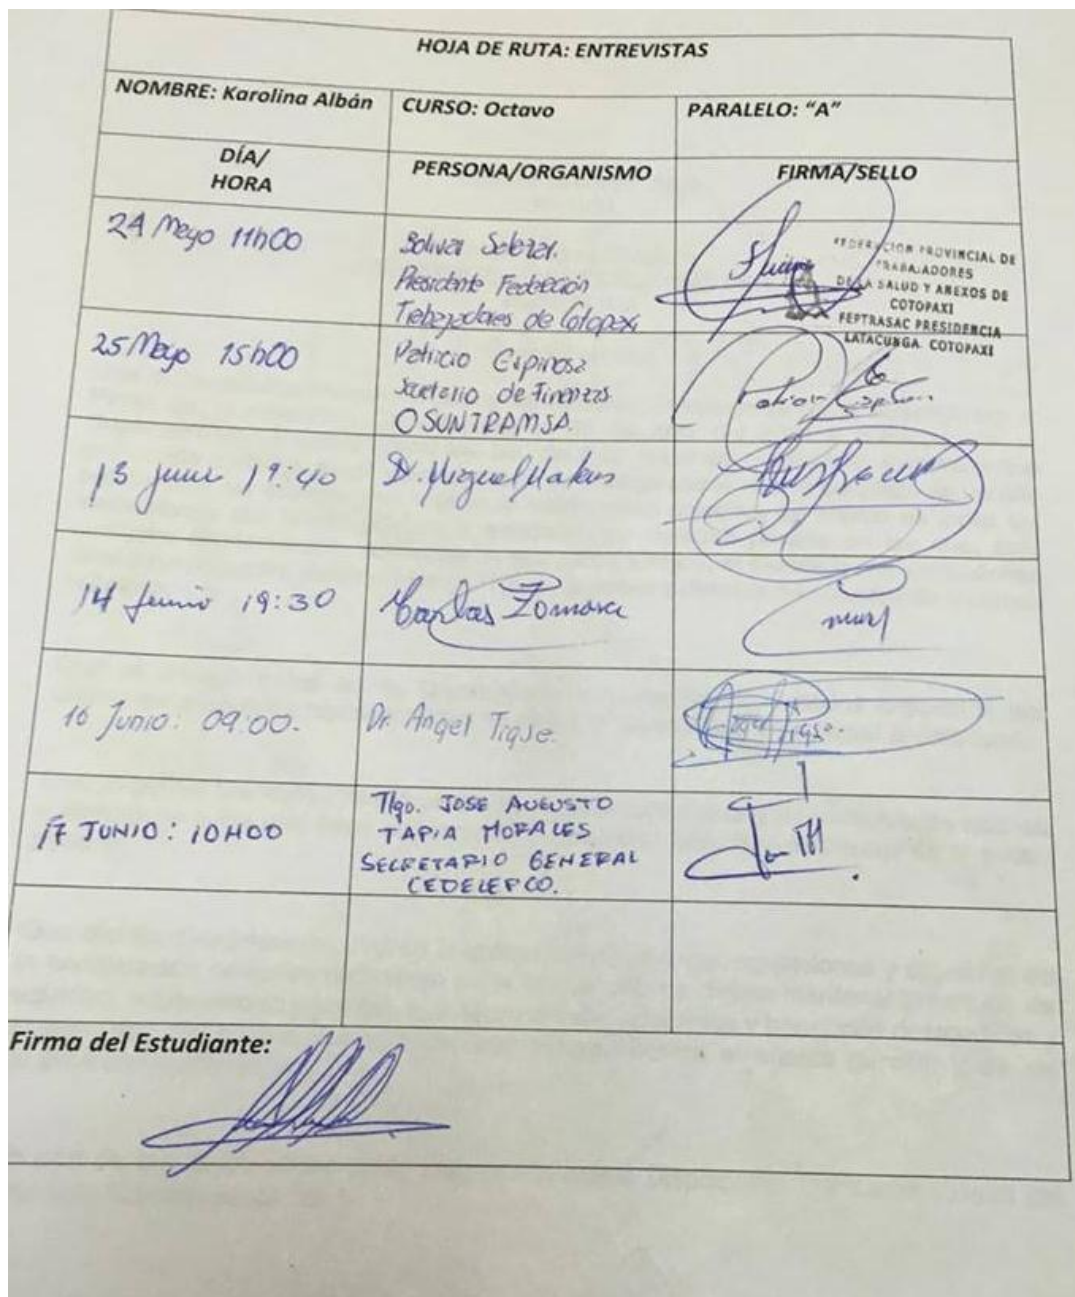 HOJA DE RUTA: ENTREVISTAS
NOMBRE: Karolina Albán
CURSO: Octavo
PARALELO: “A”
DÍA/
HORA
PERSONA/ORGANISMO
FIRMA/SELLO
24 Mayo 11h00
Bolivar Salazar.
Presidente Federación
Trabajadores de Cotopaxi
FEDERACION PROVINCIAL DE
TRABAJADORES
DE LA SALUD Y ANEXOS DE
COTOPAXI
FEPTRASAC PRESIDENCIA
LATACUNGA COTOPAXI
25 Mayo 15h00
Patricio Espinosa
Secretario de Finanzas
OSUNTRAMSA.
Patricio Espin
13 junio 19:40
Dr. Miguel
14 Junio 19:30
Carlos Zomora
16 Junio. 09:00.
Dr. Angel Tigse.
Angel Tigse.
17 JUNIO: 10H00
Tlgo. JOSE AUGUSTO
TAPIA MORALES
SECRETARIO GENERAL
CEDELEPCO.
Firma del Estudiante: